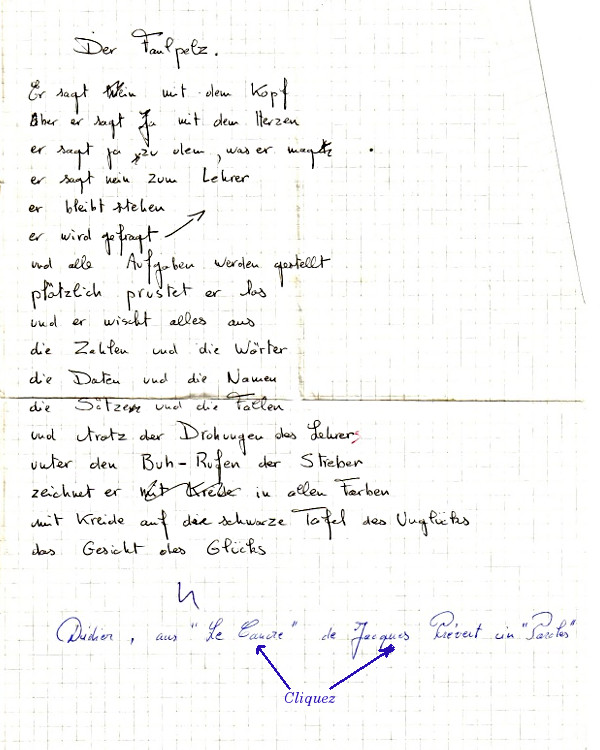 Der Faulpelz.
Er sagt Nein mit dem Kopf
Aber er sagt Ja mit dem Herzen
er sagt ja zu dem, was er mag
er sagt nein zum Lehrer
er bleibt stehen
er wird gefragt
und alle Aufgaben werden gestellt
plötzlich prustet er los
und er wischt alles aus
die Zahlen und die Wörter
die Daten und die Namen
die Sätze und die Fallen
und trotz der Drohungen des Lehrers
unter den Buh-Rufen der Streber
zeichnet er mit Kreide in allen Farben
mit Kreide auf die schwarze Tafel des Unglücks
das Gesicht des Glücks
Didier, aus "Le Cancre" de Jacques Prévert in "Paroles"
Cliquez